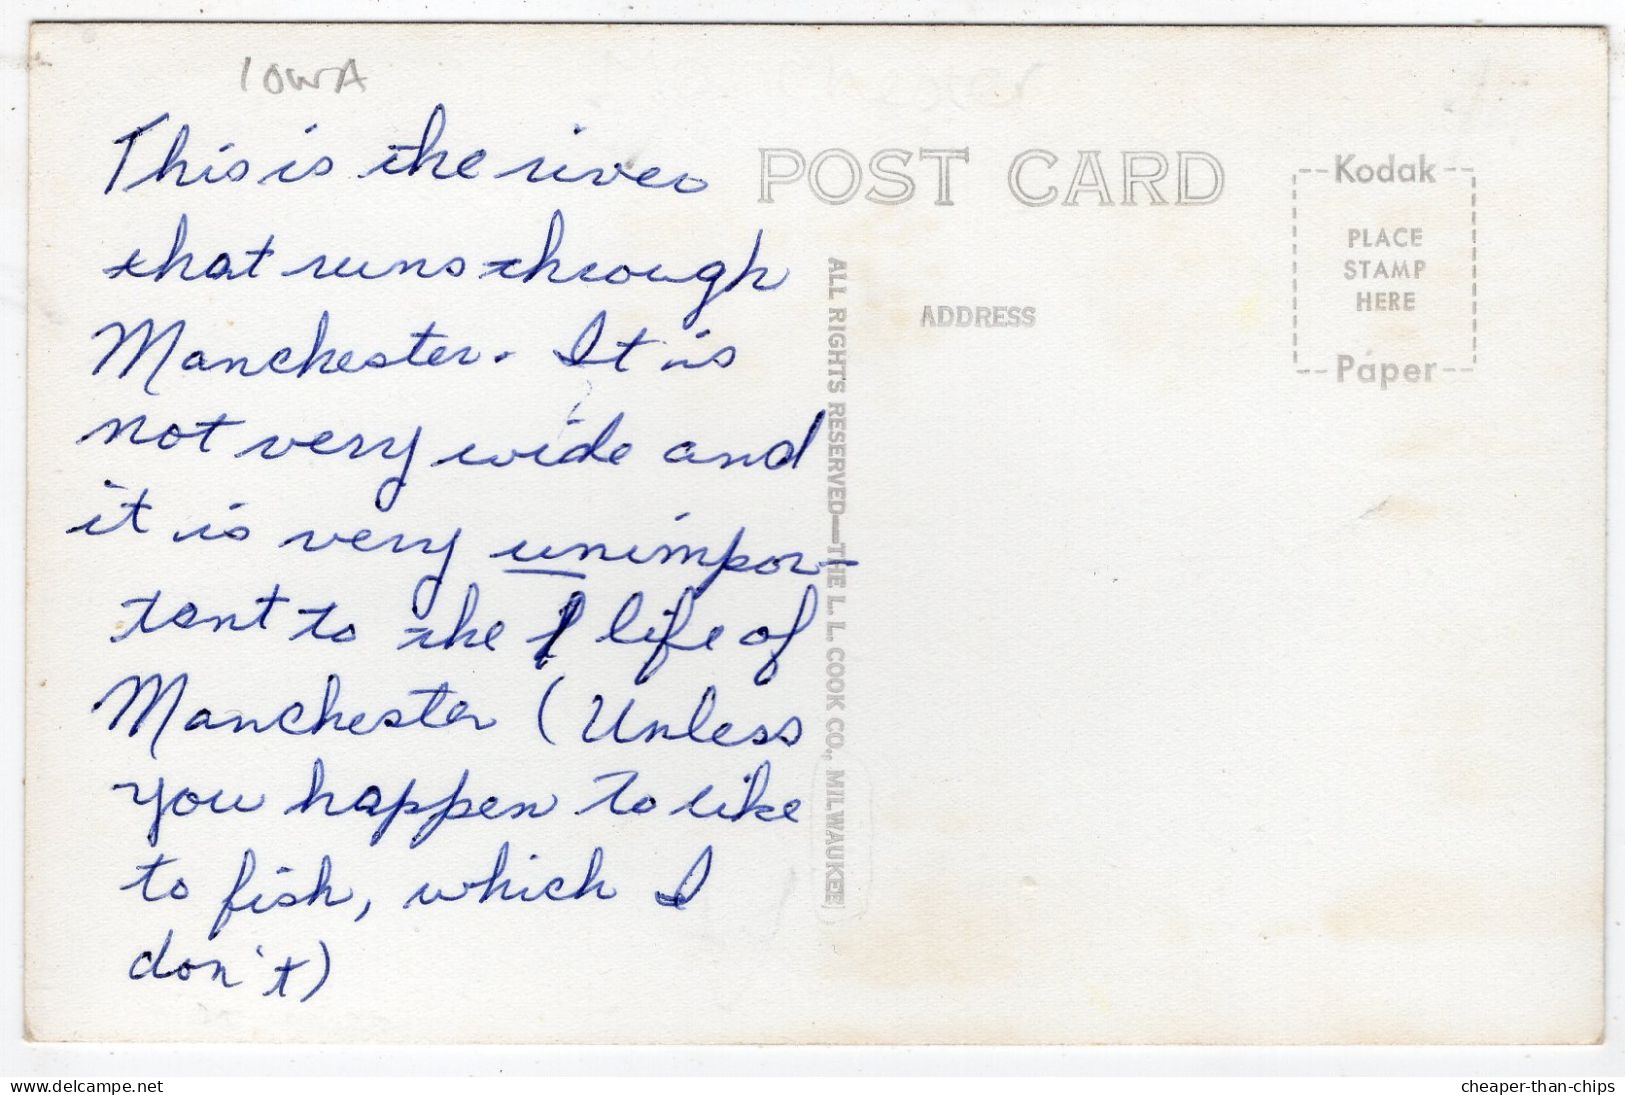 IOWA
This is the river
that runs through
Manchester. It is
not very wide and
it is very unimpor-
tant to the life of
Manchester (Unless
you happen to like
to fish, which I
don't)
POST CARD
ADDRESS
Kodak
PLACE
STAMP
HERE
Paper
ALL RIGHTS RESERVED—THE L. L. COOK CO., MILWAUKEE
www.delcampe.net
cheaper-than-chips